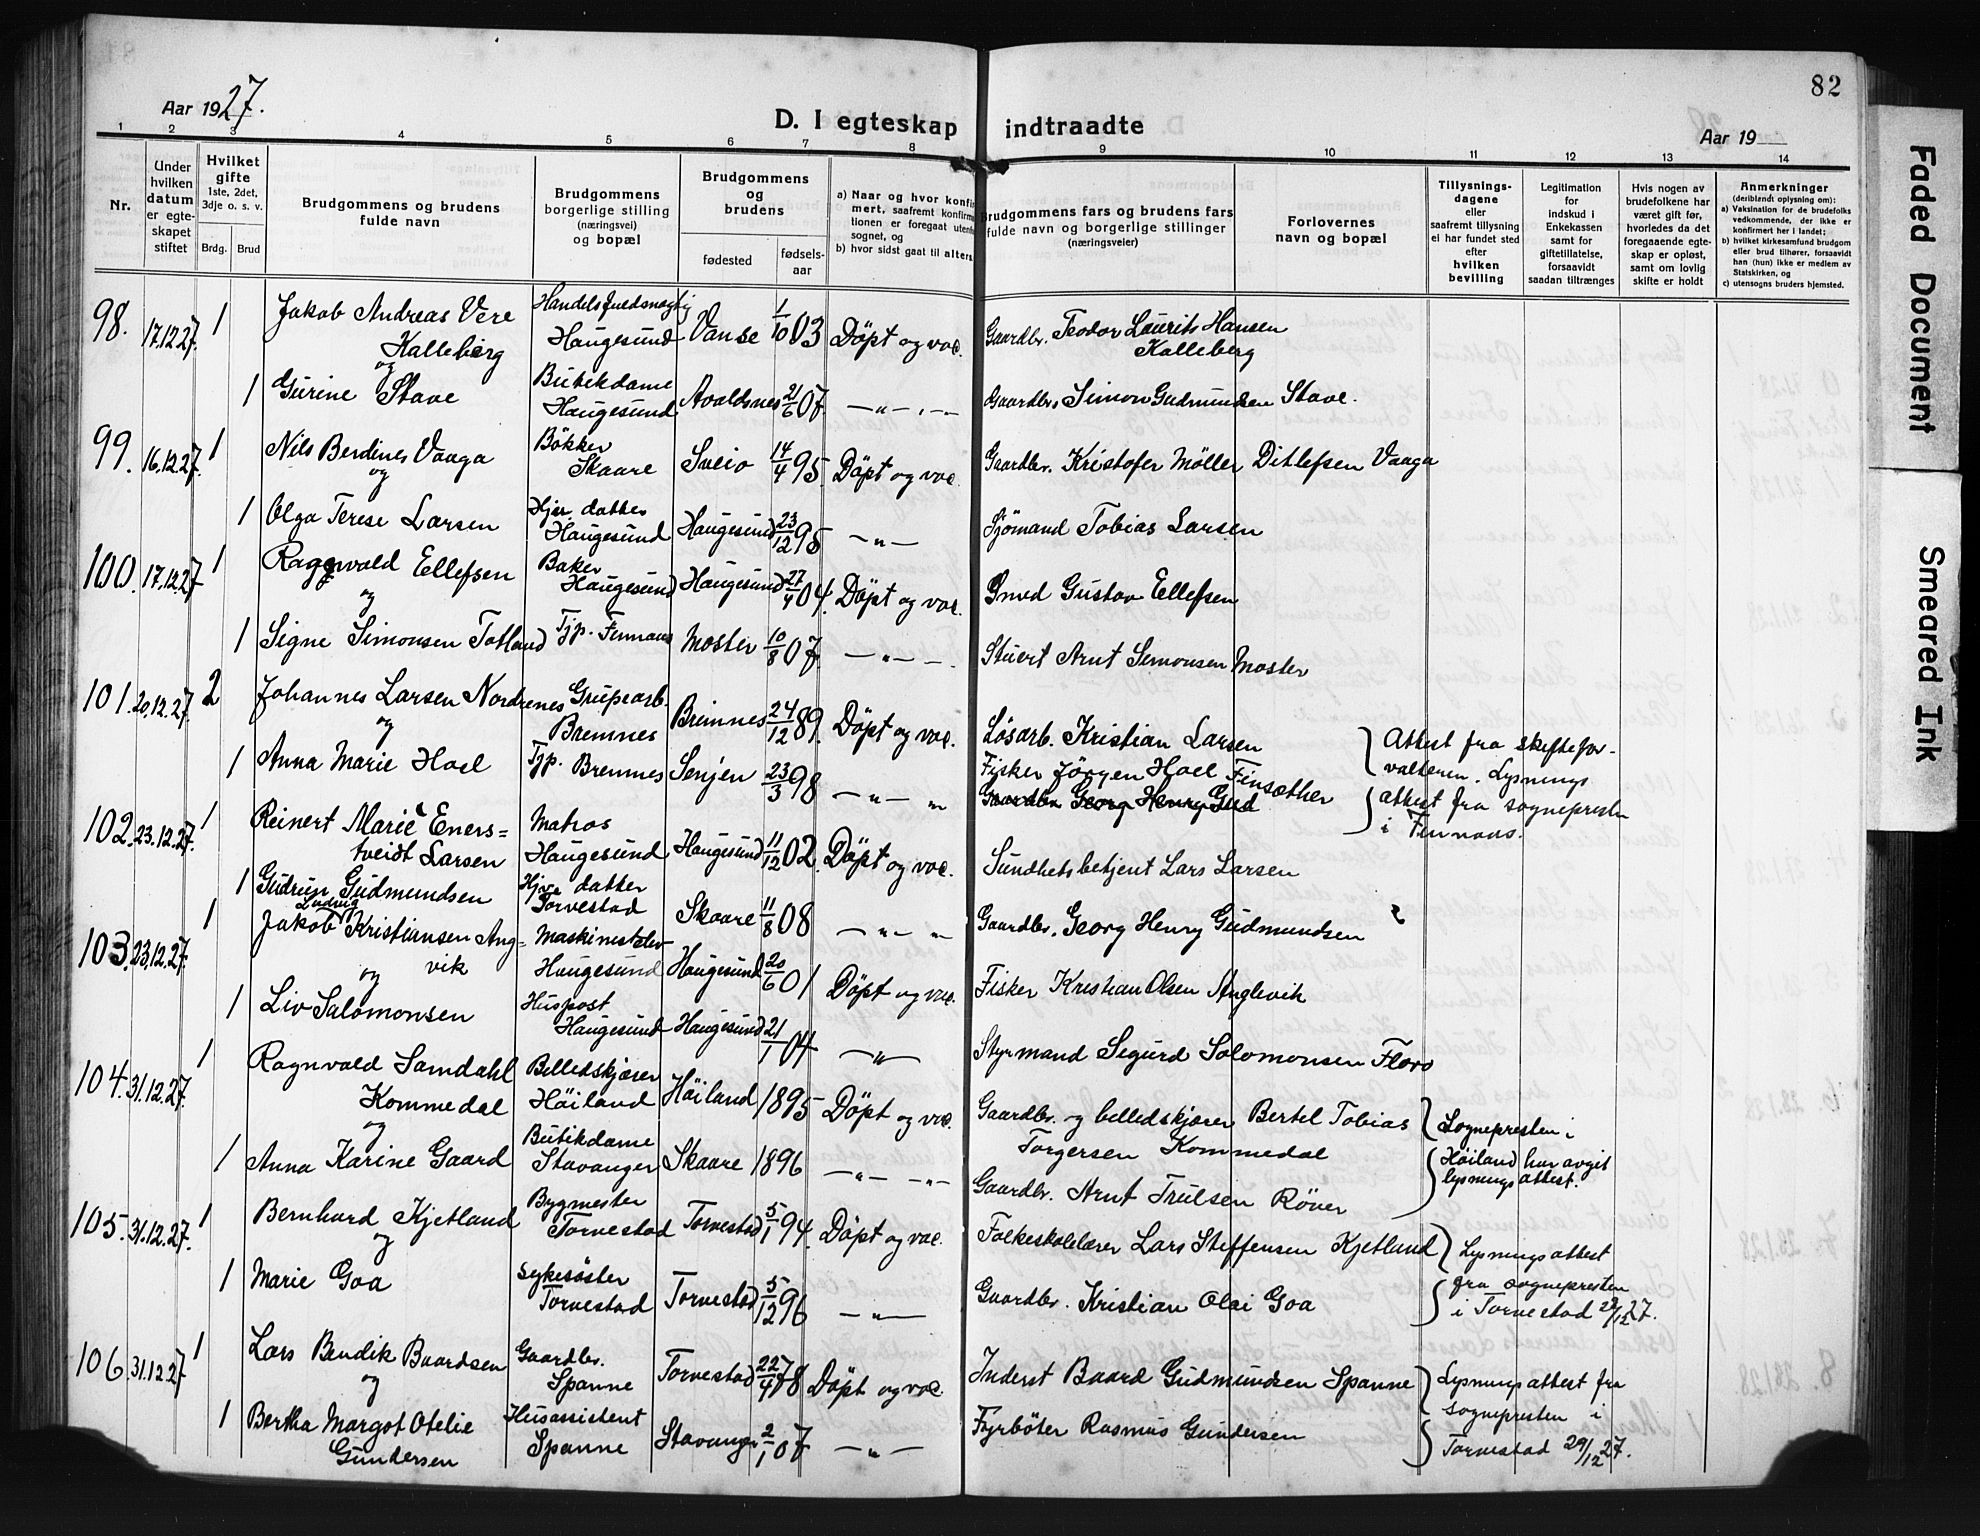 82
Aar 1927.
D. I egteskap indtraadte
Aar 19
1 2 3 4 5 6 7 8 9 10 11 12 13 14
Nr.
Under hvilken datum er egteskapet stiftet
Hvilket gifte 1ste, 2det, 3dje o. s. v.
Brdg. Brud
Brudgommens og brudens fulde navn
Brudgommens borgerlige stilling (næringsvei) og bopæl
Brudgommens og brudens
fødested
fødsels-aar
a) Naar og hvor konfirmert, saafremt konfirmationen er foregaat utenfor sognet, og
b) hvor sidst gaat til alters.
Brudgommens fars og brudens fars fulde navn og borgerlige stillinger (næringsveier)
Forlovernes navn og bopæl
Tillysnings-dagene eller saafremt tillysning ei har fundet sted efter hvilken bevilling
Legitimation for indskud i Enkekassen samt for giftetillatelse, forsaavidt saadan tiltrænges
Hvis nogen av brudefolkene har været gift før, hvorledes da det foregaaende egteskap er opløst, samt om lovlig skifte er holdt
Anmerkninger (deriblandt oplysning om):
a) Vaksination for de brudefolks vedkommende, der ikke er konfirmert her i landet;
b) hvilket kirkesamfund brudgom eller brud tilhører, forsaavidt han (hun) ikke er medlem av Statskirken, og
c) utensogns bruders hjemsted.
98. 17.12.27. 1 Jakob Andreas Vere Kalleberg Handelsfuldmægtig Haugesund Vanse 1/10 03 Döpt og vac. Gaardbr. Teodor Laurits Hansen Kalleberg
og
1 Gurine Stave Butikdame Haugesund Avaldsnes 21/6 07 —„— Gaardbr. Simon Gudmundsen Stave.
99. 16.12.27. 1 Nils Berdines Vaaga Bökker Skaare Sveio 14/4 95 Döpt og vac. Gaardbr. Kristofer Möller Ditlefsen Vaaga
og
1 Olga Terese Larsen Hjv. datter Haugesund Haugesund 23/12 95 —„— Sjömand Tobias Larsen
100. 17.12.27 1 Ragnvald Ellefsen Baker Haugesund Haugesund 27/4 04. Döpt og vac. Smed Gustav Ellefsen
og
1 Signe Simonsen Totland Tjp. Finnaas Moster 10/8 07 —„— Stuert Arnt Simonsen Moster
101. 20.12.27. 2 Johannes Larsen Nordrenes Grupearb. Bremnes Bremnes 24/12 89. Döpt og vac. Løsarb. Kristian Larsen
og
1 Anna Marie Hoel Tjp. Bremnes Senjen 23/3 98 —„— „ Fisker Jörgen Hoel Finsæther
Gaardbr. Georg Henry Gud
Attest fra skiftefor-
valteren. Lysnings
attest fra sognepresten
i Finnaas.
102. 23.12.27. 1 Reinert Marie Eners=
tveidt Larsen Matros Haugesund Haugesund 11/12 02. Döpt og vac. Sundhetsbetjent Lars Larsen
1 Gudrun Gudmundsen Hjv. datter Torvestad Skaare 11/8 08 —„— „ Gaardbr. Georg Henry Gudmundsen
103. 23.12.27. 1 Jakob Ludvig Kristiansen Ang=
vik Haugesund Haugesund 20/6 01 Döpt og vac. Fisker Kristian Olsen Anglevik
og
1 Liv Salomonsen Huspost Haugesund Haugesund 21/1 04 —„— Styrmand Sigurd Solomonsen Floro
104. 31.12.27. 1 Ragnvald Samdahl Kommedal Billedskjærer Höiland Höiland 1895 Döpt og vac. Gaardbr. og billedskjærer Bertel Tobias Torgersen Kommedal
og
1 Anna Karine Gaard Butikdame Stavanger Skaare 1896 —„— —„— Gaardbr. Arnt Trulsen Røver
Sognepresten i
Höiland har avgit
lysningsattest.
105. 31.12.27. 1 Bernhard Kjetland Bygmester Torvestad Torvestad 5/1 94. Döpt og vac. Folkeskolelærer Lars Steffensen Kjetland
og
1 Marie Goa Sykesöster Torvestad Torvestad 5/12 96 —„— Gaardbr. Kristian Olai Goa
Lysningsattest
fra sognepresten
i Torvestad 29/12 27.
106. 31.12.27 1 Lars Bendik Baardsen Gaardbr. Spanne Torvestad 22/4 78 Döpt og vac. Inderst Baard Gudmundsen Spanne
og
1 Bertha Margot Otelie Gundersen Husassistent Spanne Stavanger 2/1 07 —„— Fyrböter Rasmus Gundersen
Lysningsattest fra
sognepresten i
Torvestad 29/12 27.
Faded Document
Smeared Ink